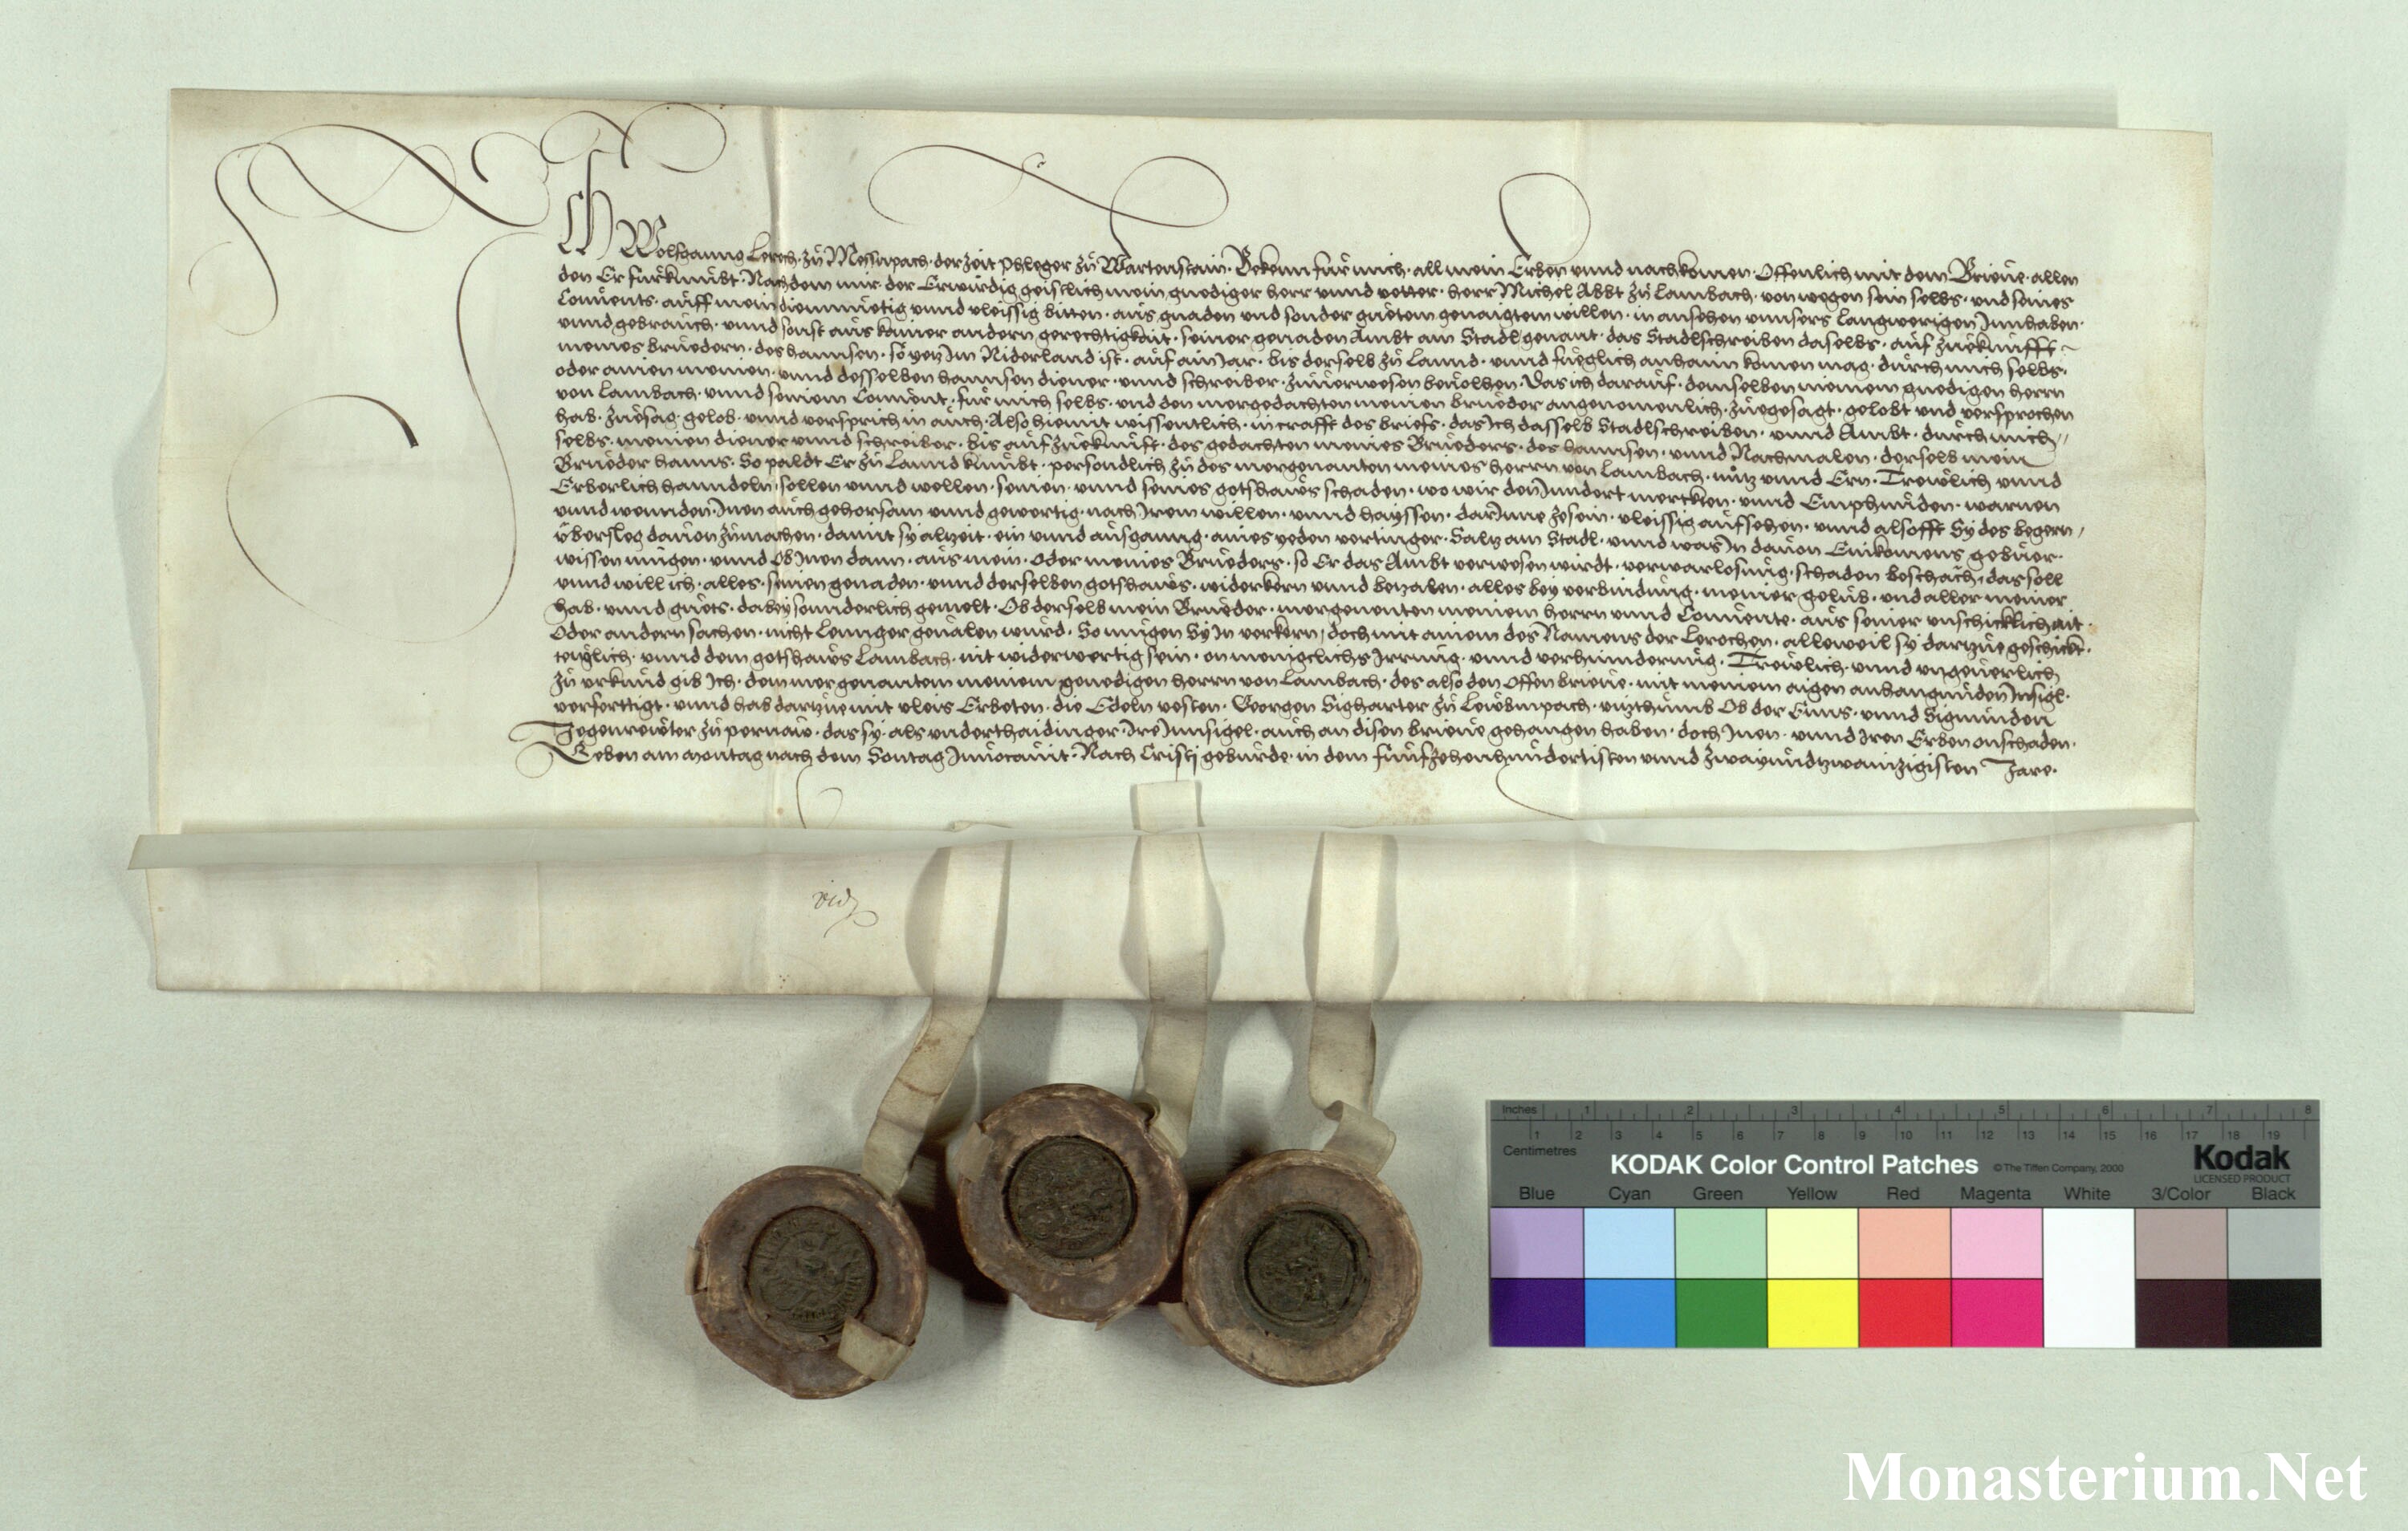 Ich Wolfganng Leroch · zů Messnpach · der zeit Phleger zů Wartenstain · Bekenn für mich · all mein Erben vnnd nachkomen · Offenlich mit dem Brieue · allen
den Er fürkumbt · Nachdem mir · der Erwirdig geistlich mein gnediger herr vnnd vetter · herr Michel Abbt zů Lambach · von wegen sein selbs · vnd seines
Conuents · auff mein diemmietig vnnd vleissig bitten · aus gnaden vnd sonder guetem genaigtem willen · in ansehen vnnsers langwerigen Innhaben ·
vnnd gebrauch · vnnd sonst aus kainer andern gerechtigkait · seiner genaden Ambt am Stadl genant · das Stadlschreiben daselbs · auf zuekunfft
meines bruedern · des hannsen · so yetz Im Niderland ist · auf ain Jar · bis derselb zů lannd · vnnd füeglich anhaim komen mag · durch mich selbs ·
oder ainen meinen · vnnd desselben hannsen diener · vnnd schreiber · zuuerwesen beuolhen · Das ich darauf · demselben meinem gnedigen herrn
von Lambach · vnnd seinem Conuent · für mich selbs · vnd den mergedachten meinen brueder angenomenlich · zuegesagt · gelobt vnd versprochen
hab · zuesag · gelob · vnnd versprich in auch · Also hiemit wissentlich · in crafft des briefs · das Ich dasselb Stadlschreiben · vnnd Ambt · durch mich
selbs · meinen diener vnnd schreiber · bis auf zuekunfft · des gedachten meines Brueders · des hannsen · vnnd Nachmalen · derselb mein
Brueder hanns · So paldt Er zů Lannd kumbt · persondlich zů des mergenanten meines herrn von Lambach · nutz vnnd Ern · Trewlich vnnd
Erberlich hanndeln · sollen vnnd wellen · seinen · vnnd seines gotshawss schaden · wo wir den Inndert mercken · vnnd Emphunden · warnen
vnnd wennden · Inen auch gehorsam vnnd gewertig · nach Irem willen · vnnd hayssen · darInne zesein · vleissig aufsehen · vnnd alsofft Sy des begern /
vberslag dauon zumachen · damit sy alzeit · ein vnnd ausganng · aines yeden vertinger · Saltz am Stadl · vnnd was In dauon Einkomens gebüer ·
wissen mügen · vnnd Ob Inen dann · aus mein · Oder meines Brueders · so Er das Ambt verwesen wirdt · verwarlosung · schaden beschäch · das soll
vnnd will ich · alles · seinen genaden · vnnd derselben gotshawss · widerkern vnnd betzalen · alles bey verbindung · meiner gelüb · vnd aller meiner
hab · vnnd guets · dabey sonnderlich gemelt · Ob derselb mein Brueder · mergenenten meinem herrn vnnd Conuente · aus seiner vnschicklichait ·
Oder andern sachen · nicht lennger geuallen wurd · So mügen Sy In verkern / doch mit ainem des Namens der Lerochen · alleweil sy dartzue geschickt ·
teuglich · vnnd dem gotshawss Lambach · nit widerwertig sein · on menigclichs Irrung · vnnd verhinnderung · Trewlich · vnnd vngeuerlich
zů vrkund gib Ich · dem mergenantem meinem genedigen herrn von Lambach · des also den Offen brieue · mit meinem aigen anhangunden Insigl ·
verferttigt · vnnd hab dartzue mit vleis Erbeten · die Edeln vesten · Georgen Sigharter zů Lewbmpach · vitzthumb Ob der Enns · vnnd Sigmunden
Tegenrewter zů pernaw · das sy · als vnderthaidinger · Ire Innsigel · auch an disen brieue gehangen haben · doch Inen · vnnd Iren Erben onschaden ·
Geben am Montag nach dem Sontag Inuocauit · Nach Cristj geburde · in dem fünfzehenhundertisten vnnd zwayundtzwainzigisten Jare ·
Inches 1 2 3 4 5 6 7 8
1 2 3 4 5 6 7 8 9 10 11 12 13 14 15 16 17 18 19
Centimetres
KODAK Color Control Patches © The Tiffen Company, 2000 Kodak
LICENSED PRODUCT
Blue Cyan Green Yellow Red Magenta White 3/Color Black
Monasterium.Net